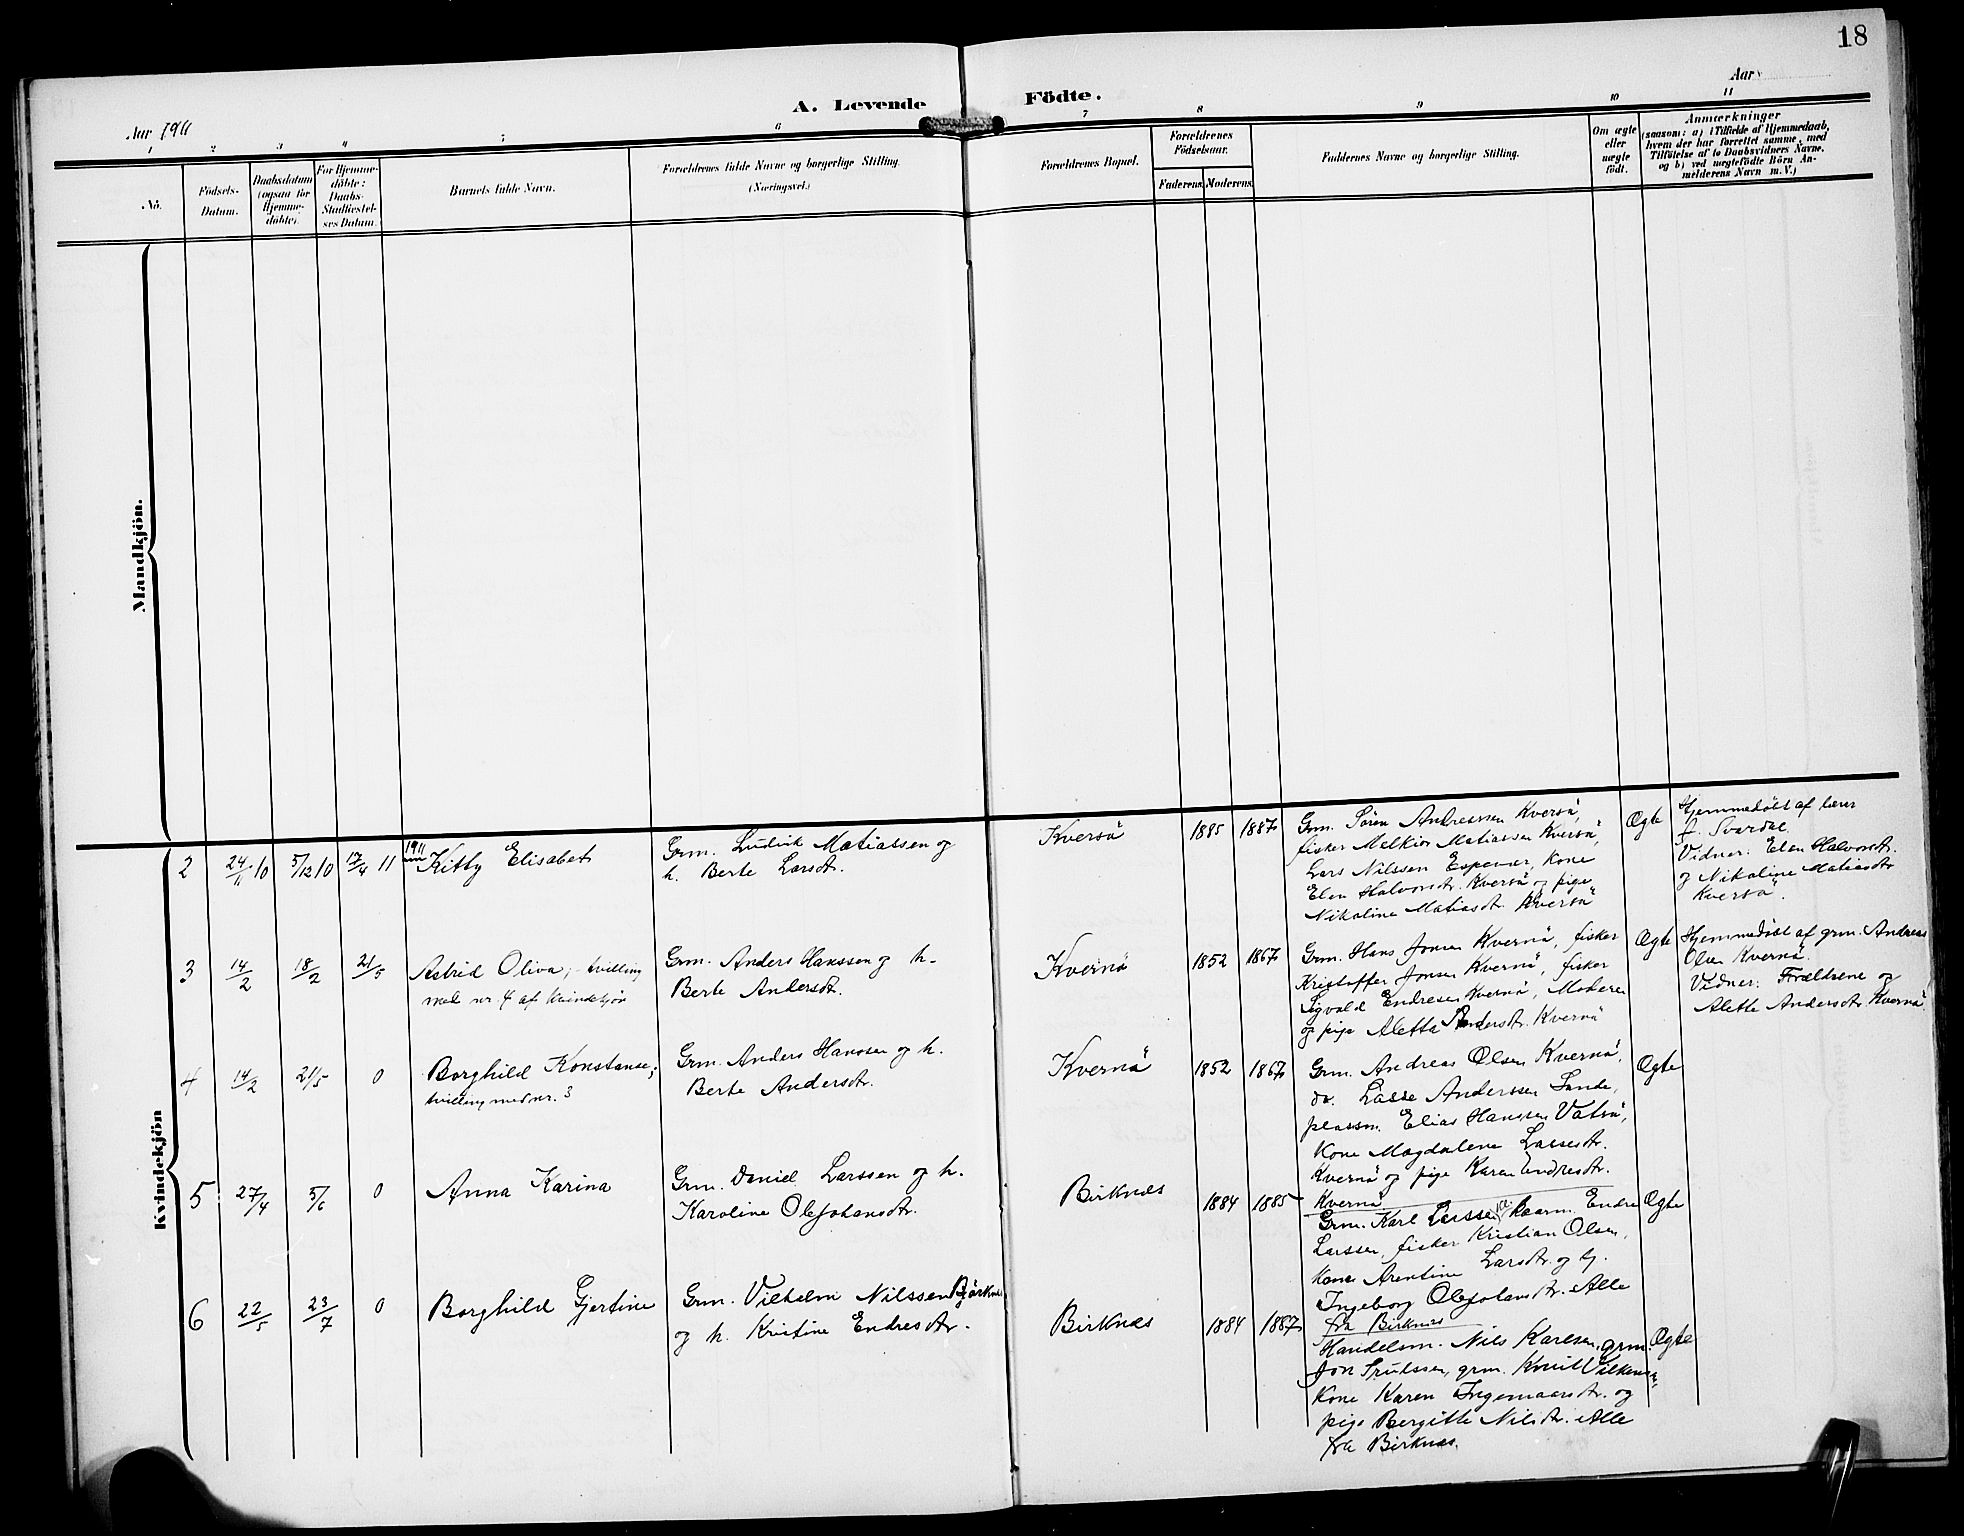 18
A. Levende Födte.
Aar 1911
Aar
1 2 3 4 5 6 7 8 9 10 11
No.
Födsels-
Datum.
Daabsdatum
(ogsaa for
Hjemme-
döbte).
For Hjemme-
döbte:
Daabs-
Stadfæstel-
ses Datum.
Barnets fulde Navn.
Forældrenes fulde Navne og borgerlige Stilling.
(Næringsvei.)
Forældrenes Bopæl.
Forældrenes
Födselsaar.
Faderens.
Moderens.
Faddernes Navne og borgerlige Stilling.
Om ægte
eller
uægte
födt.
Anmærkninger
(saasom: a) i Tilfælde af Hjemmedaab,
hvem der har forrettet samme, med
Tilföielse af to Daabsvidners Navne,
og b) ved uægtefödte Börn An-
melderens Navn m. V.)
Mandkjön.
Kvindekjön
2
24/11 10
5/12 10
17/4 11
1911
Kitty Elisabet
Grm. Ludvik Matiassen og
h. Berte Larsdtr.
Kversö
1885
1887
Grm. Sören Andreassen Kversö,
fisker Melkior Matiassen Kversö,
Lars Nilssen Espevær, Kone
Elen Halvorsdtr. Kversö og pige
Nikoline Matiasdtr. Kversö
Ægte
Hjemmedöbt af lærer
J. Svardal.
Vidner: Elen Halvorsdtr.
og Nikoline Matiasdtr
Kversö.
3
14/2
18/2
21/5
Astrid Oliva, tvilling
med nr. 4 af kvindekjön
Grm. Anders Hanssen og h.
Berte Andersdtr.
Kvernö
1852
1867
Grm. Hans Jonsen Kvernö, fisker
Kristoffer Jonsen Kvernö, fisker
Sigvald Endresen Kvernö, Moderen
og pige Aletta Andersdtr. Kvernö
Ægte
Hjemmedöbt af grm. Andreas
Olsen Kvernö.
Vidner: Forældrene og
Alette Andersdtr. Kvernö
4
14/2
21/5
0
Borghild Konstanse;
tvilling med nr. 3
Grm. Anders Hanssen og h.
Berte Andersdtr.
Kvernö
1852
1867
Grm. Andreas Olsen Kvernö,
do. Lasse Anderssen Sande,
plassm. Elias Hanssen Vatnö,
Kone Magdalene Lassesdtr.
Kvernö og pige Karen Endresdtr.
Kvernö
Ægte
5
27/4
5/6
0
Anna Karina
Grm. Daniel Larssen og h.
Karoline Olejohansdtr.
Birknes
1884
1885
Grm. Karl Larssen, Endre
Larssen, fisker Kristian Olsen,
Kone Arentine Larsdtr. og
Ingeborg Olejohansdtr. Alle
fra Birknes
Ægte
6
22/5
23/7
0
Borghild Gjertine
Grm. Vilhelm Nilssen Björknes
og h. Kristine Endresdtr.
Birknes
1884
1887
Handelsm. Nils Karlsen, grm.
Jon grm. Knut
Kone Karen Ingemarsdtr. og
pige Bergitte Nilsdtr. Alle
fra Birknes.
Ægte